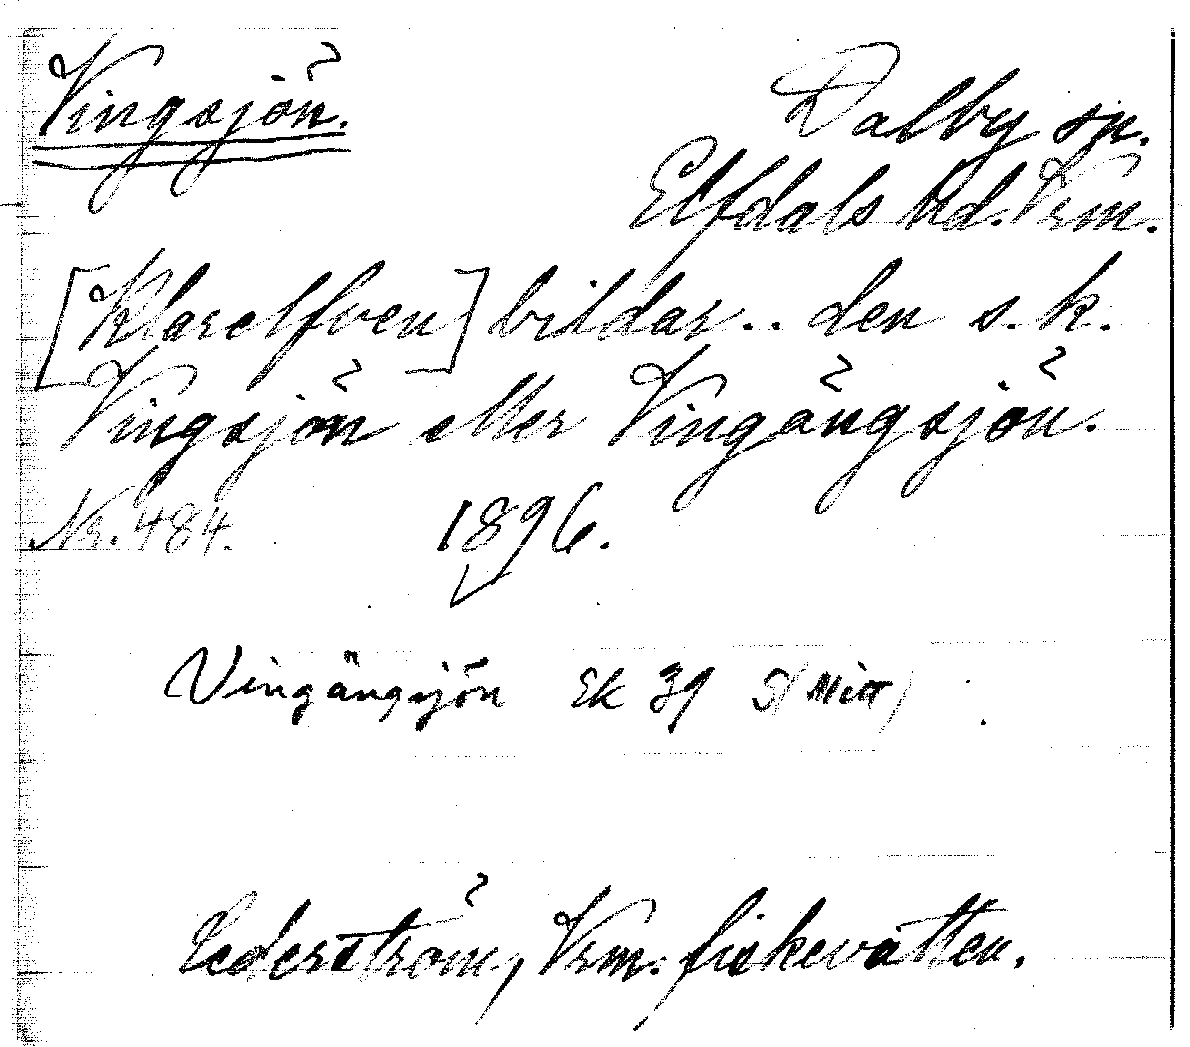 Vingsjön.
Dalby sn.
Elfdals hd. Vrm.
[Klarelfven] bildar.. den s.k.
Vingsjön eller Vingängsjön.
Nr. 484. 1896.
Vingängsjön Ek 39 5 (Mitt)
Cederström, Vrm. fiskevatten.